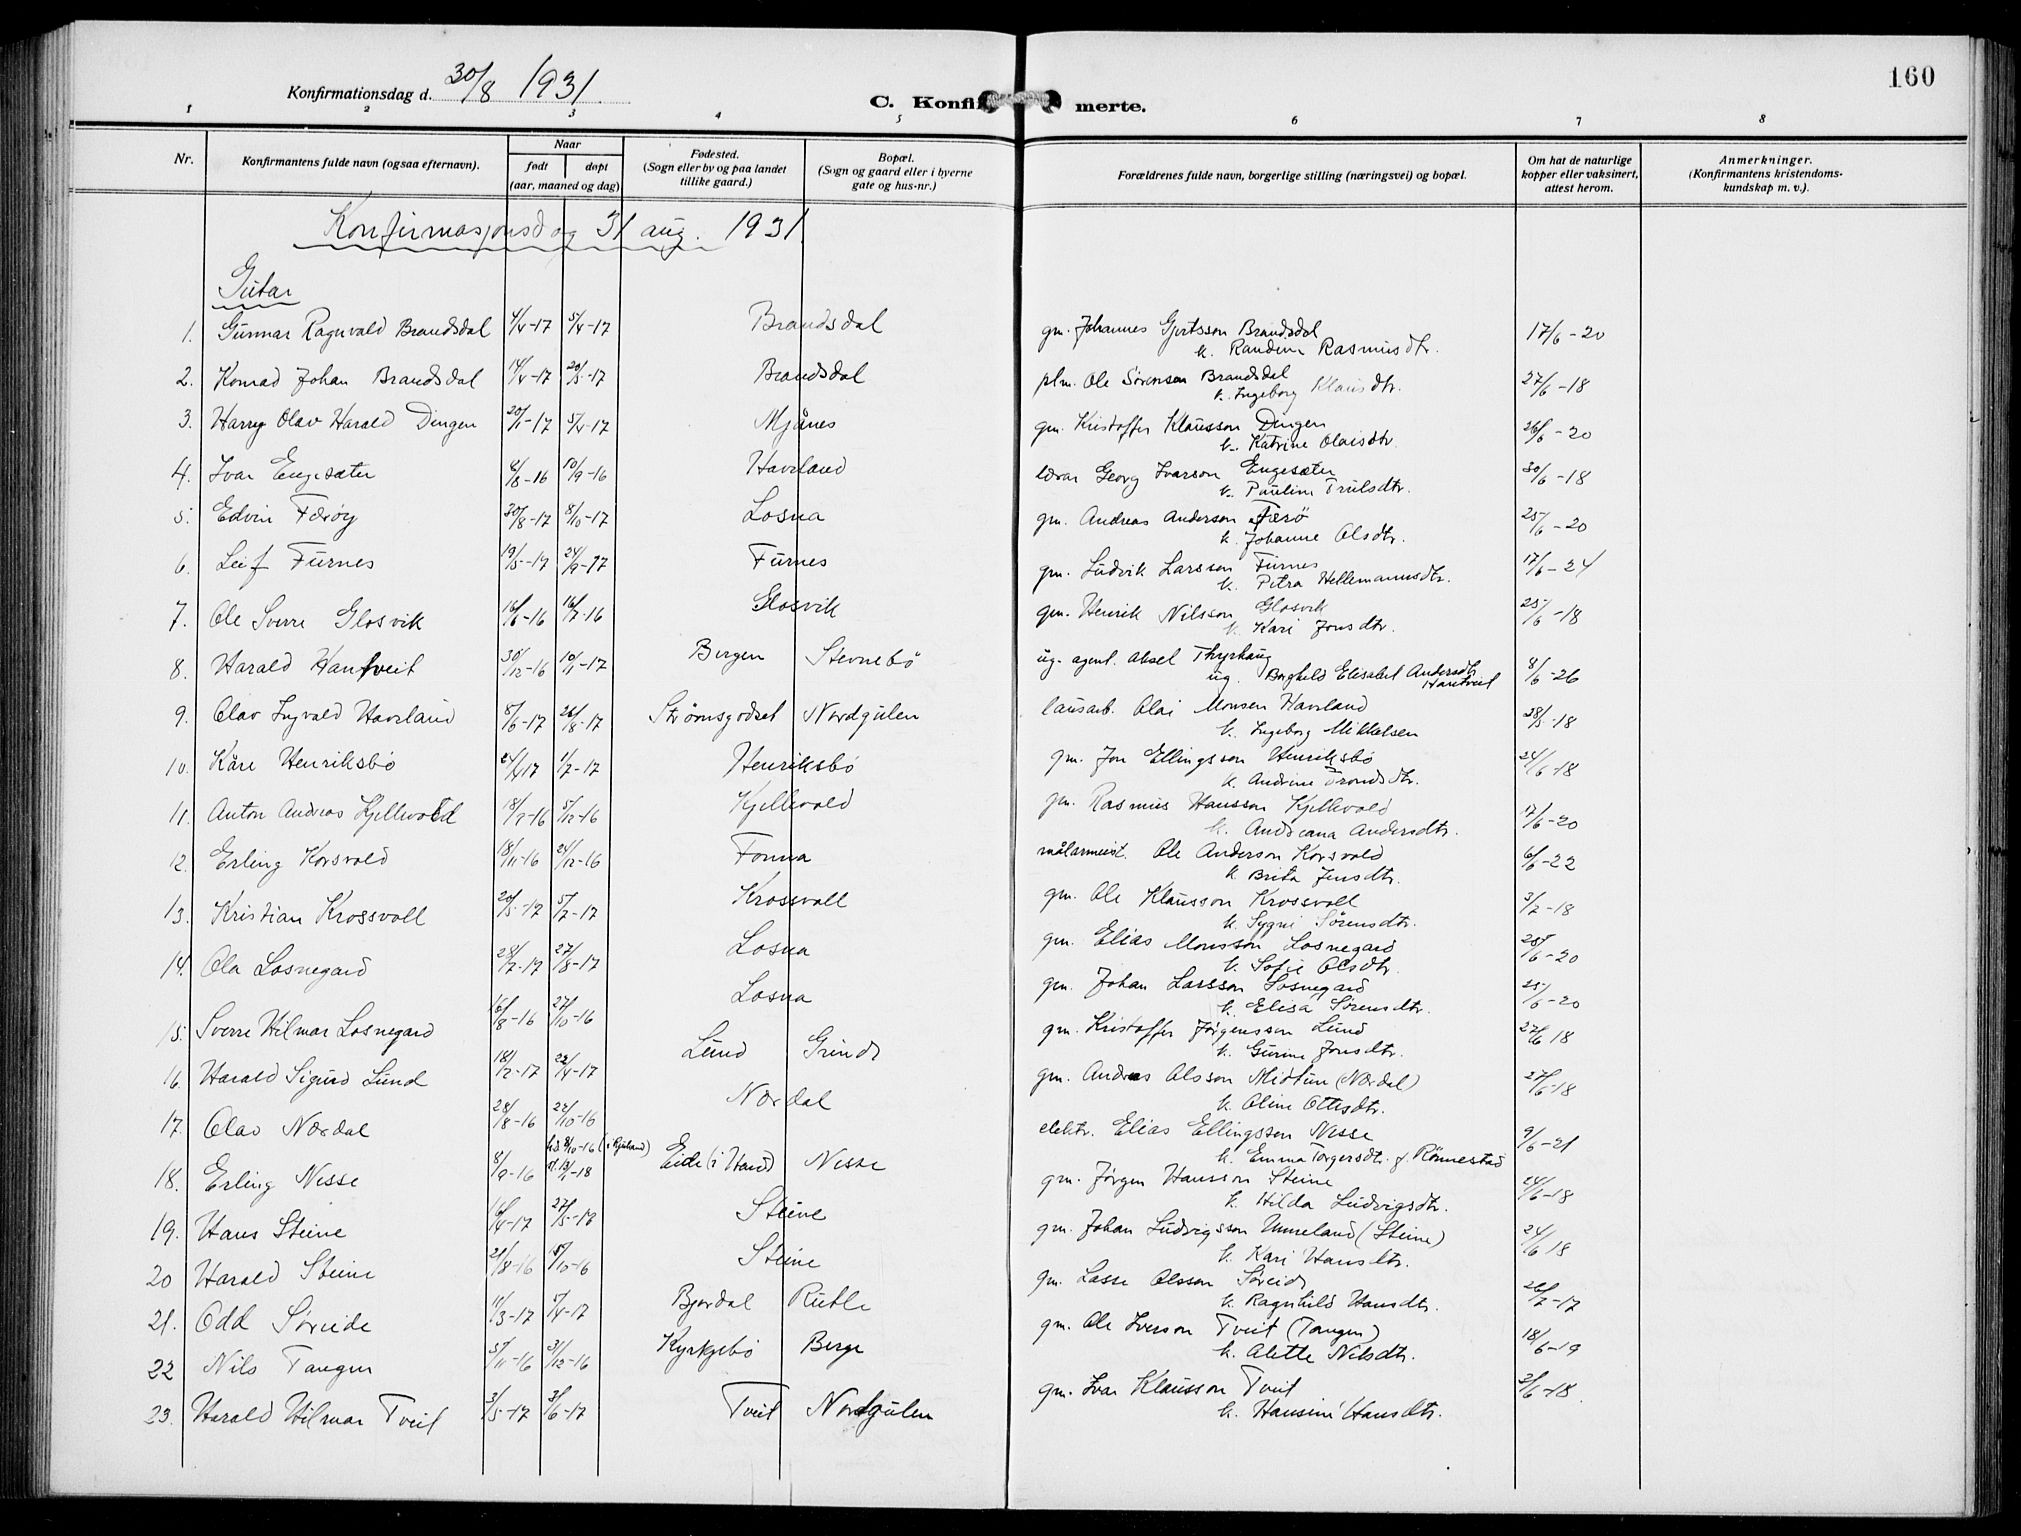 160
Konfirmationsdag d. 30/8 1931
C. Konfi merte.
1 2 3 4 5 6 7 8
Nr. Konfirmantens fulde navn (ogsaa efternavn). Naar født døpt (aar, maaned og dag) Fødested. (Sogn eller by og paa landet tillike gaard.) Bopæl. (Sogn og gaard eller i byerne gate og hus-nr.) Forældrenes fulde navn, borgerlige stilling (næringsvei) og bopæl. Om hat de naturlige kopper eller vaksinert, attest herom. Anmerkninger. (Konfirmantens kristendoms-kundskap m. v.).
Konfirmasjonsdag 31 aug. 1931.
Gutar
1. Gunnar Ragnvald Brandsdal 4/4-17 5/4-17 Brandsdal gm. Johannes Gjertsson Brandsdal 17/6-20
k. Randine Rasmusdtr.
2. Konrad Johan Brandsdal 14/4-17 20/5-17 Brandsdal plm. Ole Sørensen Brandsdal 27/6-18
k. Ingeborg Klausdtr.
3. Harry Olav Harald Dingen 20/1-17 5/4-17 Mjånes gm. Kristoffer Klausson Dingen 26/6-20
k. Katrine Olaisdtr.
4. Ivar Engesæter 2/8-16 10/9-16 Haveland lærar Georg Ivarson Engesæter 30/6-18
k. Pauline Trulsdtr.
5. Edvin Færøy 20/8-17 8/10-17 Losna gm. Andreas Anderson Færø 25/6-20
k. Johanne Olsdtr.
6. Leif Furnes 19/5-17 24/9-17 Furnes gm. Ludvik Larsson Furnes 17/6-24
k. Petra Hellemannsdtr.
7. Ole Sverre Glosvik 16/6-16 16/7-16 Glosvik gm. Henrik Nilsson Glosvik 25/6-18
k. Kari Jonsdtr.
8. Harald Hantveit 30/12-16 10/11-17 Bergen Stevnebø ug. agent. Aksel Thyrhaug 8/6-26
ug. Borghild Elisabet Andersdtr Hantveit
9. Olav Ingvald Haveland 8/6-17 26/8-17 Strømsgodset Nordgulen lausarb. Olai Monsen Haveland 28/5-18
k. Ingeborg Mikkelsen
10. Kåre Henriksbø 24/4 17 1/7-17 Henriksbø gm. Jon Ellingsson Henriksbø 24/6-18
k. Andrine Trondsdtr.
11. Anton Andreas Kjellevold 18/7-16 5/12-16 Kjellevold gm. Rasmus Hansson Kjellevold 17/6-20
k. Andreana Andersdtr.
12. Erling Korsvold 18/11-16 24/12-16 Fonna målarmeist. Ole Anderson Korsvold 6/6-22
k. Brita Jensdtr.
13. Kristian Krossvoll 20/5-17 5/7-17 Krossvoll gm. Ole Klausson Krossvoll 3/7-18
k. Sygni Sørensdtr.
14. Ola Losnegard 28/7-17 27/8-17 Losna gm. Elias Monsson Losnegard 25/6-20
k. Sofie Olsdtr.
15. Sverre Hilmar Losnegard 16/8-16 27/10-16 Losna gm. Johan Larsson Losnegard 25/6-20
k. Elisa Sørensdtr.
16. Harald Sigurd Lund 18/2-17 22/4-17 Lund Grinde gm. Kristoffer Jörgensson Lund 27/6 18
k. Gurine Jonsdtr.
17. Olav Nordal 28/8-16 22/10-16 Nordal gm. Andreas Olsson Midtun (Nordal) 27/6-18
k. Oline Ottesdtr.
18. Erling Nesse 8/9-16 hd. 8/10-16 (i Rjukand) Eide (i Hand) Nesse elektr. Elias Ellingsson Nesse 9/6-21
k. Emma Torgersdtr. f. Rönnestad
19. Hans Steine 16/4-17 27/5-17 Steine gm. Jørgen Hansson Steine 24/6-18
k. Hilda Ludvigsdtr.
20 Harald Steine 21/8-16 15/10-16 Steine gm. Johan Ludvigsson Unneland (Steine) 24/6 18
k. Kari Hansdtr.
21. Odd Søreide 11/3-17 5/4-17 Bjordal Rutle gm. Lasse Olsson Søreide 26/7-17
k. Ragnhild Hansdtr.
22 Nils Tangen 5/11-16 31/12-16 Kyrkjebø Berge gm. Ole Iverson Tveit (Tangen) 18/6-19
k. Alette Nilsdtr.
23. Harald Hilmar Tveit 3/5-17 3/6-17 Tveit Nordgulen gm. Ivar Klausson Tveit 2/6-18
k. Hansine Hansdtr.